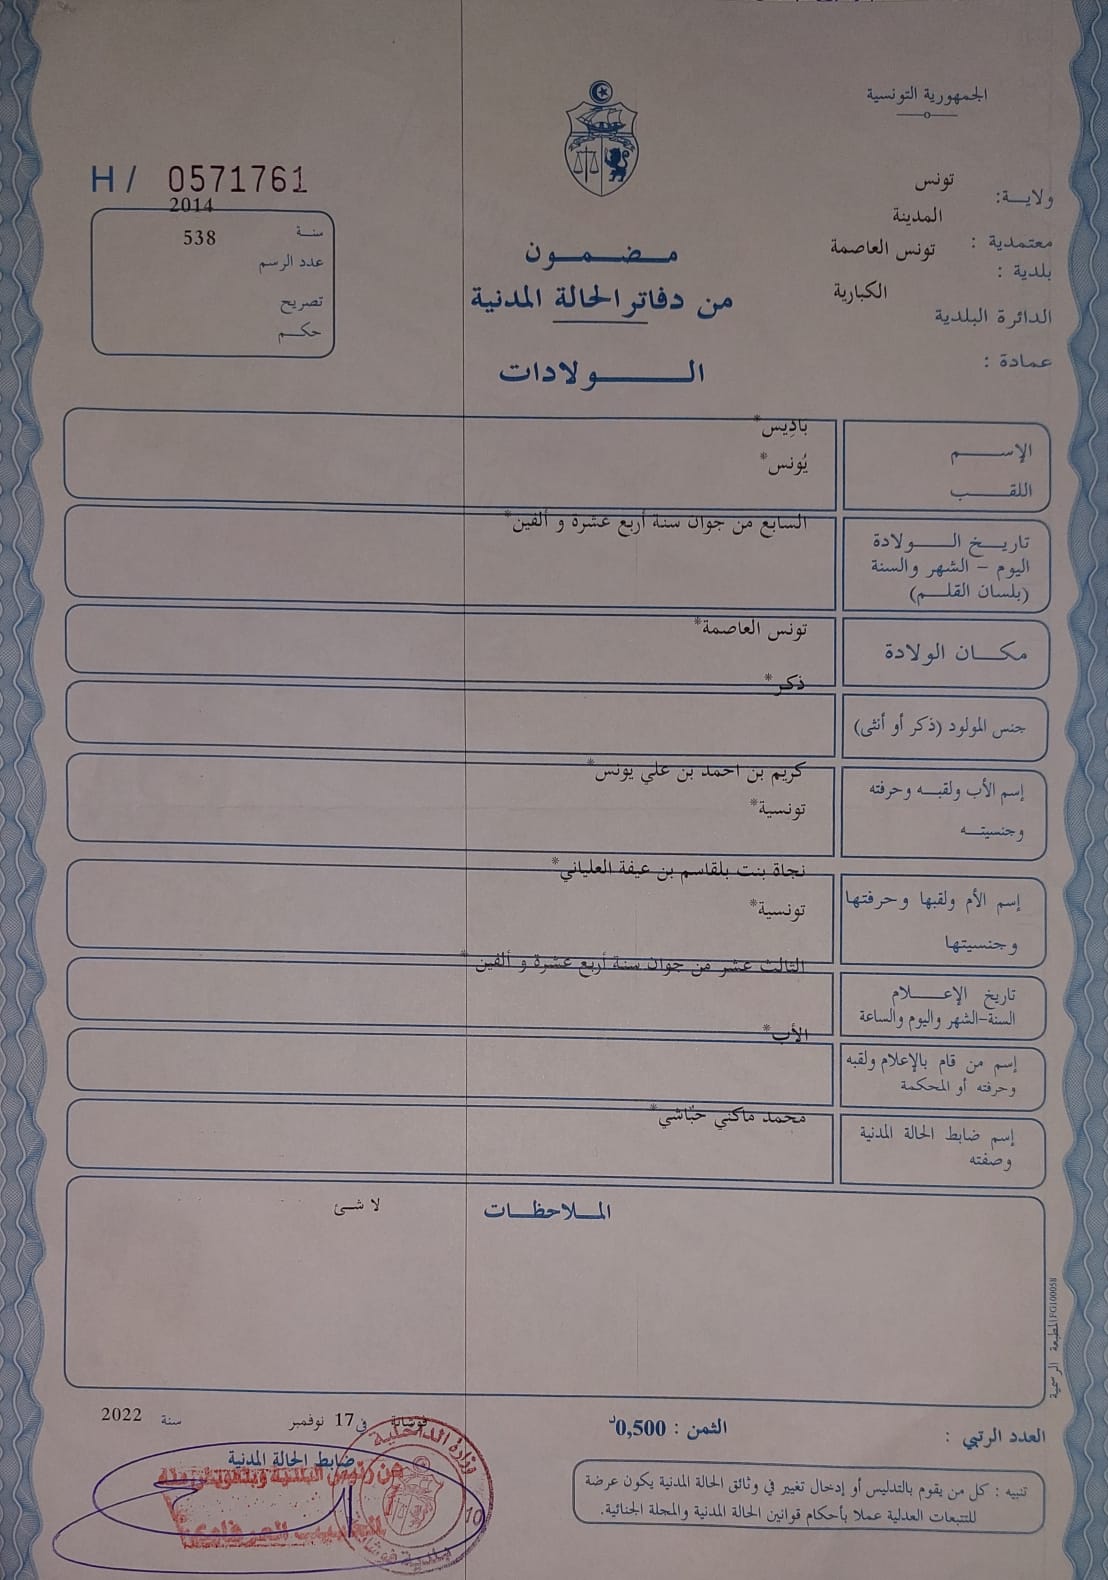 الجمهورية التونسية
ولاية: تونس
معتمدية : المدينة
بلدية : تونس العاصمة
الدائرة البلدية الكبارية
عمادة :
H/ 0571761
سنة 2014
عدد الرسم 538
تصريح
حكم
مضمون
من دفاتر الحالة المدنية
الولادات
الإسم باديس*
اللقب يُونس*
تاريخ الولادة السابع من جوان سنة أربع عشرة و ألفين*
اليوم - الشهر والسنة
(بلسان القلم)
مكان الولادة تونس العاصمة*
جنس المولود (ذكر أو أنثى) ذكر*
إسم الأب ولقبه وحرفته كريم بن احمد بن علي يونس*
وجنسيته تونسية*
إسم الأم ولقبها وحرفتها نجاة بنت بلقاسم بن عيفة العلياني*
وجنسيتها تونسية*
تاريخ الإعلام الثالث عشر من جوان سنة أربع عشرة و ألفين *
السنة-الشهر واليوم والساعة
إسم من قام بالإعلام ولقبه الأب*
وحرفته أو المحكمة
إسم ضابط الحالة المدنية محمد ماكني حبّاشي*
وصفته
الملاحظات
لا شئ
المطبعة الرسمية FG100058
العدد الرتبي :
الثمن : 0,500د
فوشانة في 17 نوفمبر سنة 2022
ضابط الحالة المدنية
عن رئيس البلدية وبتفويض منه
وزارة الداخلية
10
بلدية فوشانة
تنبيه : كل من يقوم بالتدليس أو إدخال تغيير في وثائق الحالة المدنية يكون عرضة
للتتبعات العدلية عملا بأحكام قوانين الحالة المدنية والمجلة الجنائية.